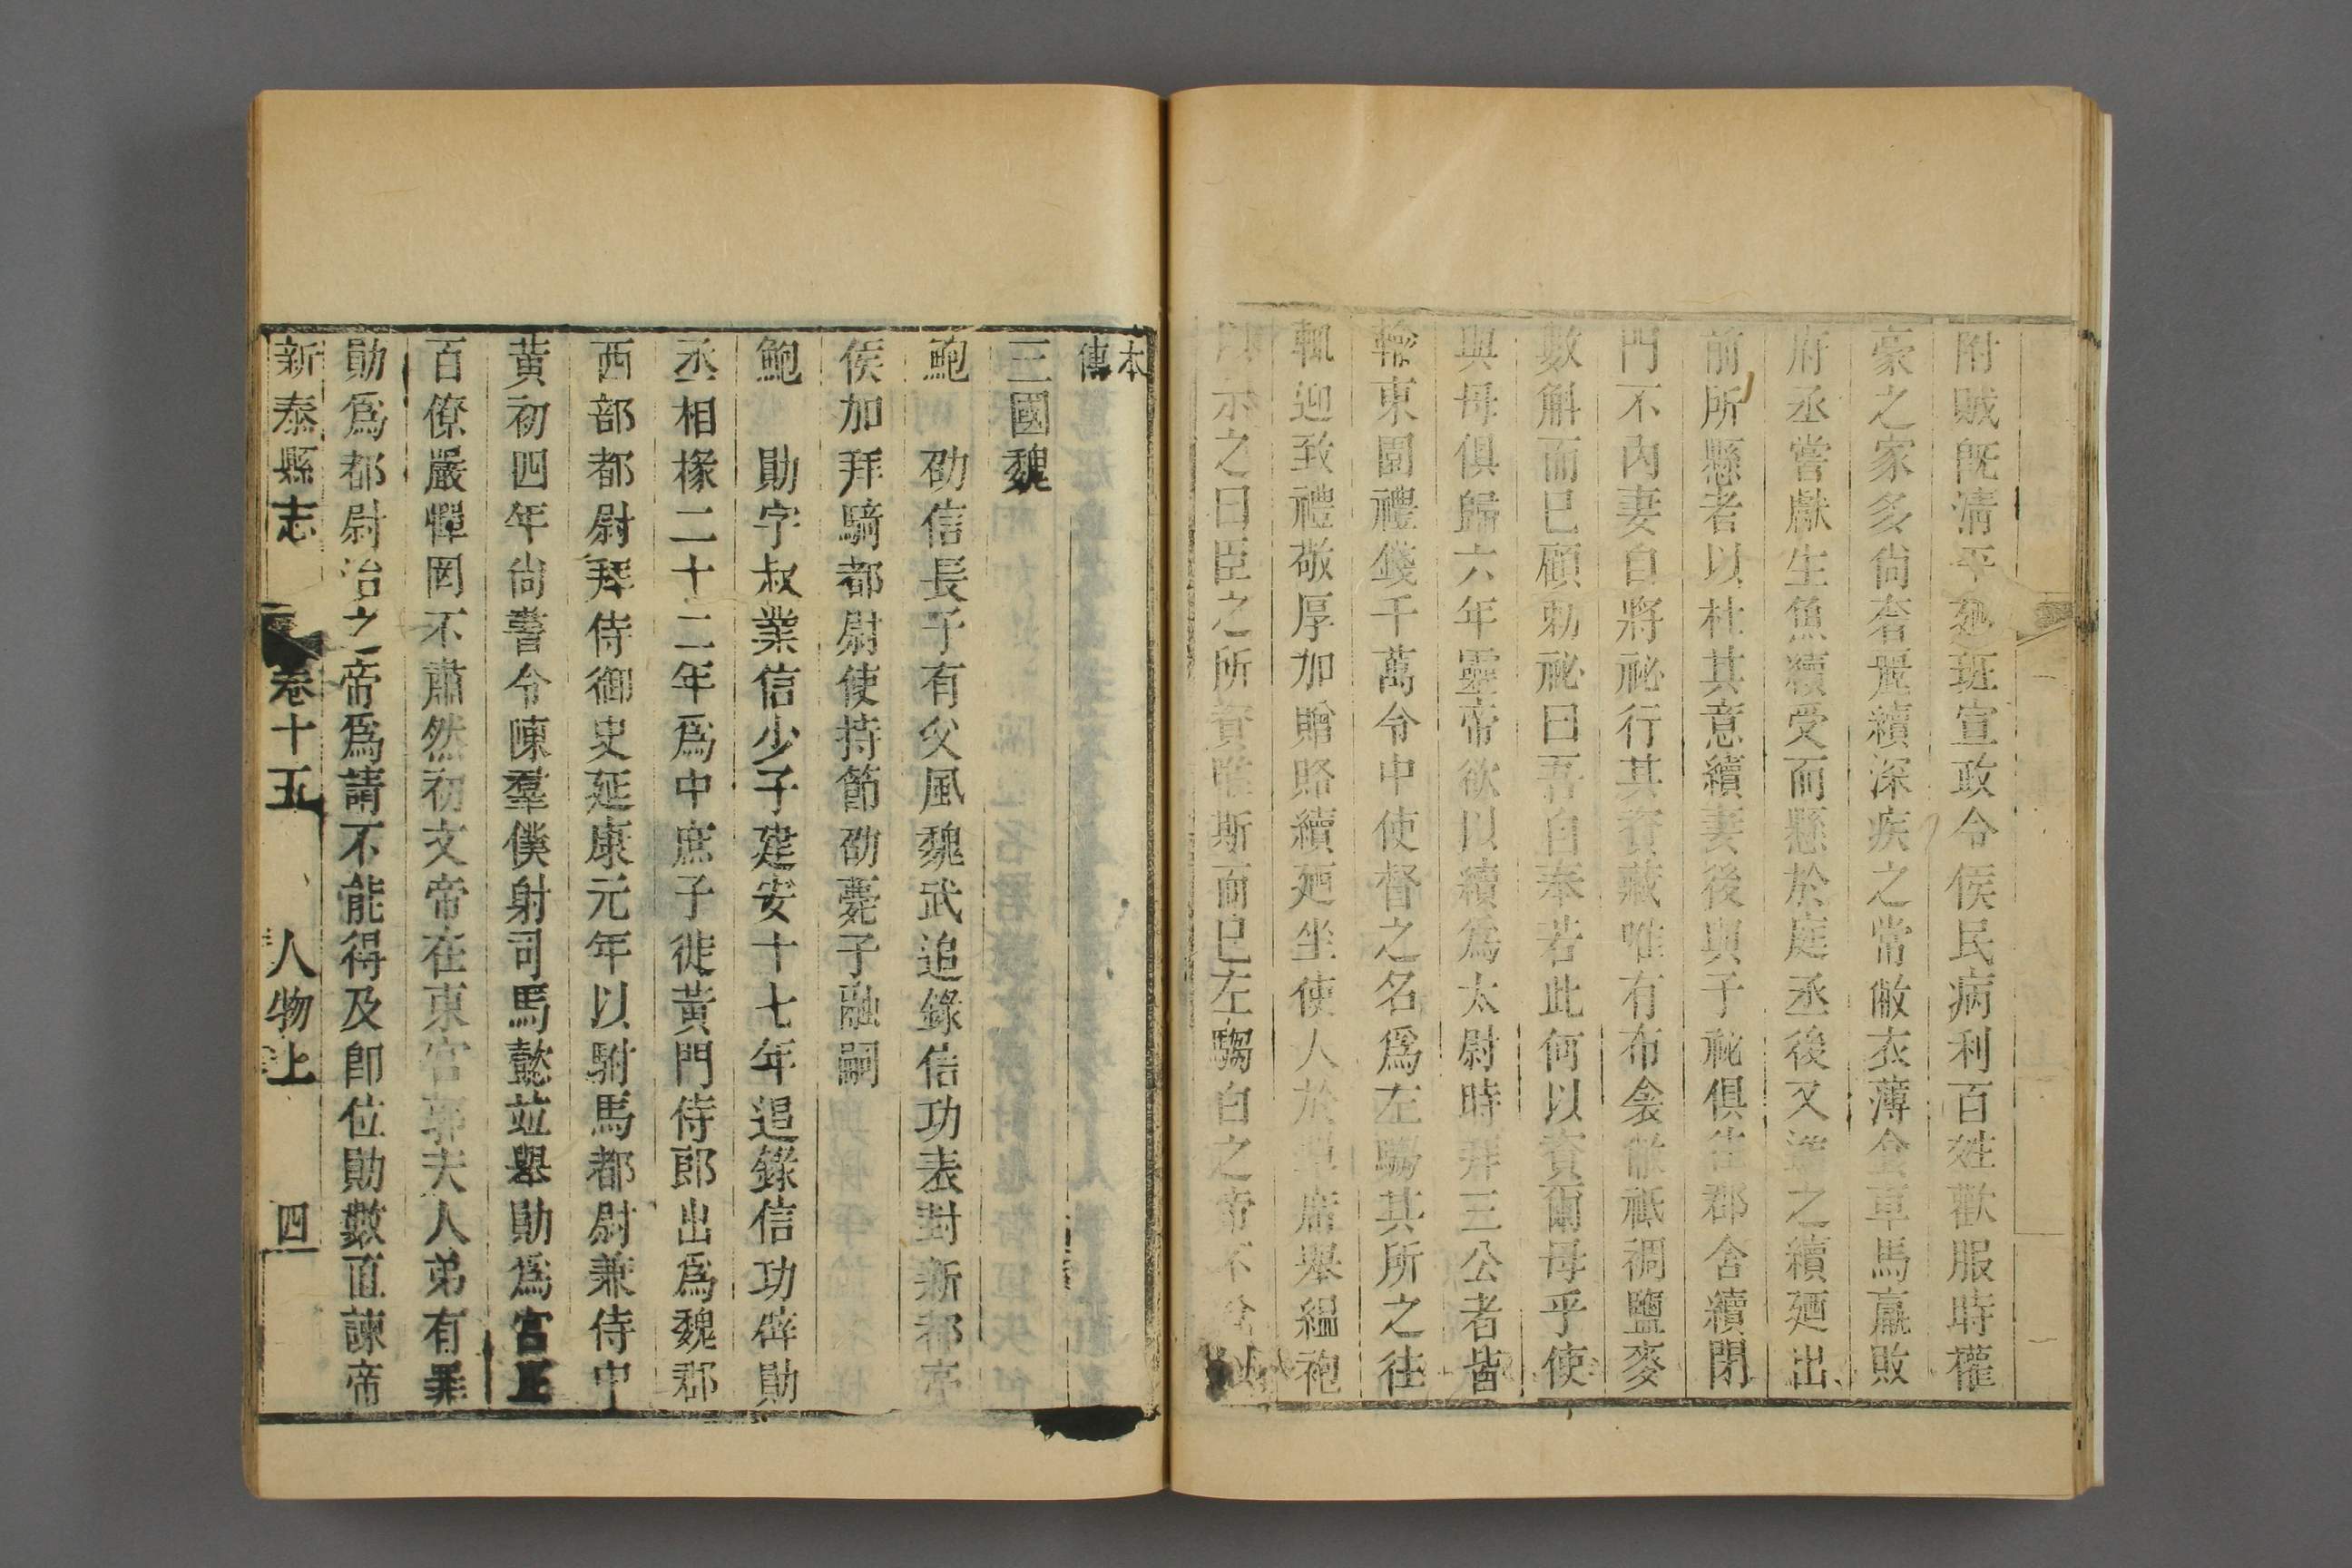 附賊旣淸平廼班宣政令侯民病利百姓歡服時權
豪之家多尙奢麗續深疾之常敝衣薄食車馬羸敗
府丞嘗獻生魚續受而懸於庭丞後又進之續廼出
前所懸者以杜其意續妻後與子祕俱徃郡舍續閉
門不內妻自將祕行其資藏唯有布衾敝袛裯鹽麥
數斛而已顧勅祕曰吾自奉若此何以資爾母乎使
與母俱歸六年靈帝欲以續爲太尉時拜三公者皆
輸東園禮錢千萬令中使督之名爲左騶其所之往
輒迎致禮敬厚加贈賂續廼坐使人於單席舉緼袍
以示之曰臣之所資唯斯而已左騶白之帝不
本傳
三國魏
鮑 劭信長子有父風魏武追錄信功表封新都亭
侯加拜騎都尉使持節劭薨子融嗣
鮑 勛字叔業信少子建安十七年追錄信功辟勛
丞相掾二十二年爲中庶子徙黃門侍郎出爲魏郡
西部都尉拜侍御史延康元年以駙馬都尉兼侍中
黃初四年尙書令陳羣僕射司馬懿竝舉勛爲宮正
百僚嚴憚罔不肅然初文帝在東宮郭夫人弟有罪
勛爲都尉治之帝爲請不能得及卽位勛數直諫帝
新泰縣志 卷十五 人物上 四